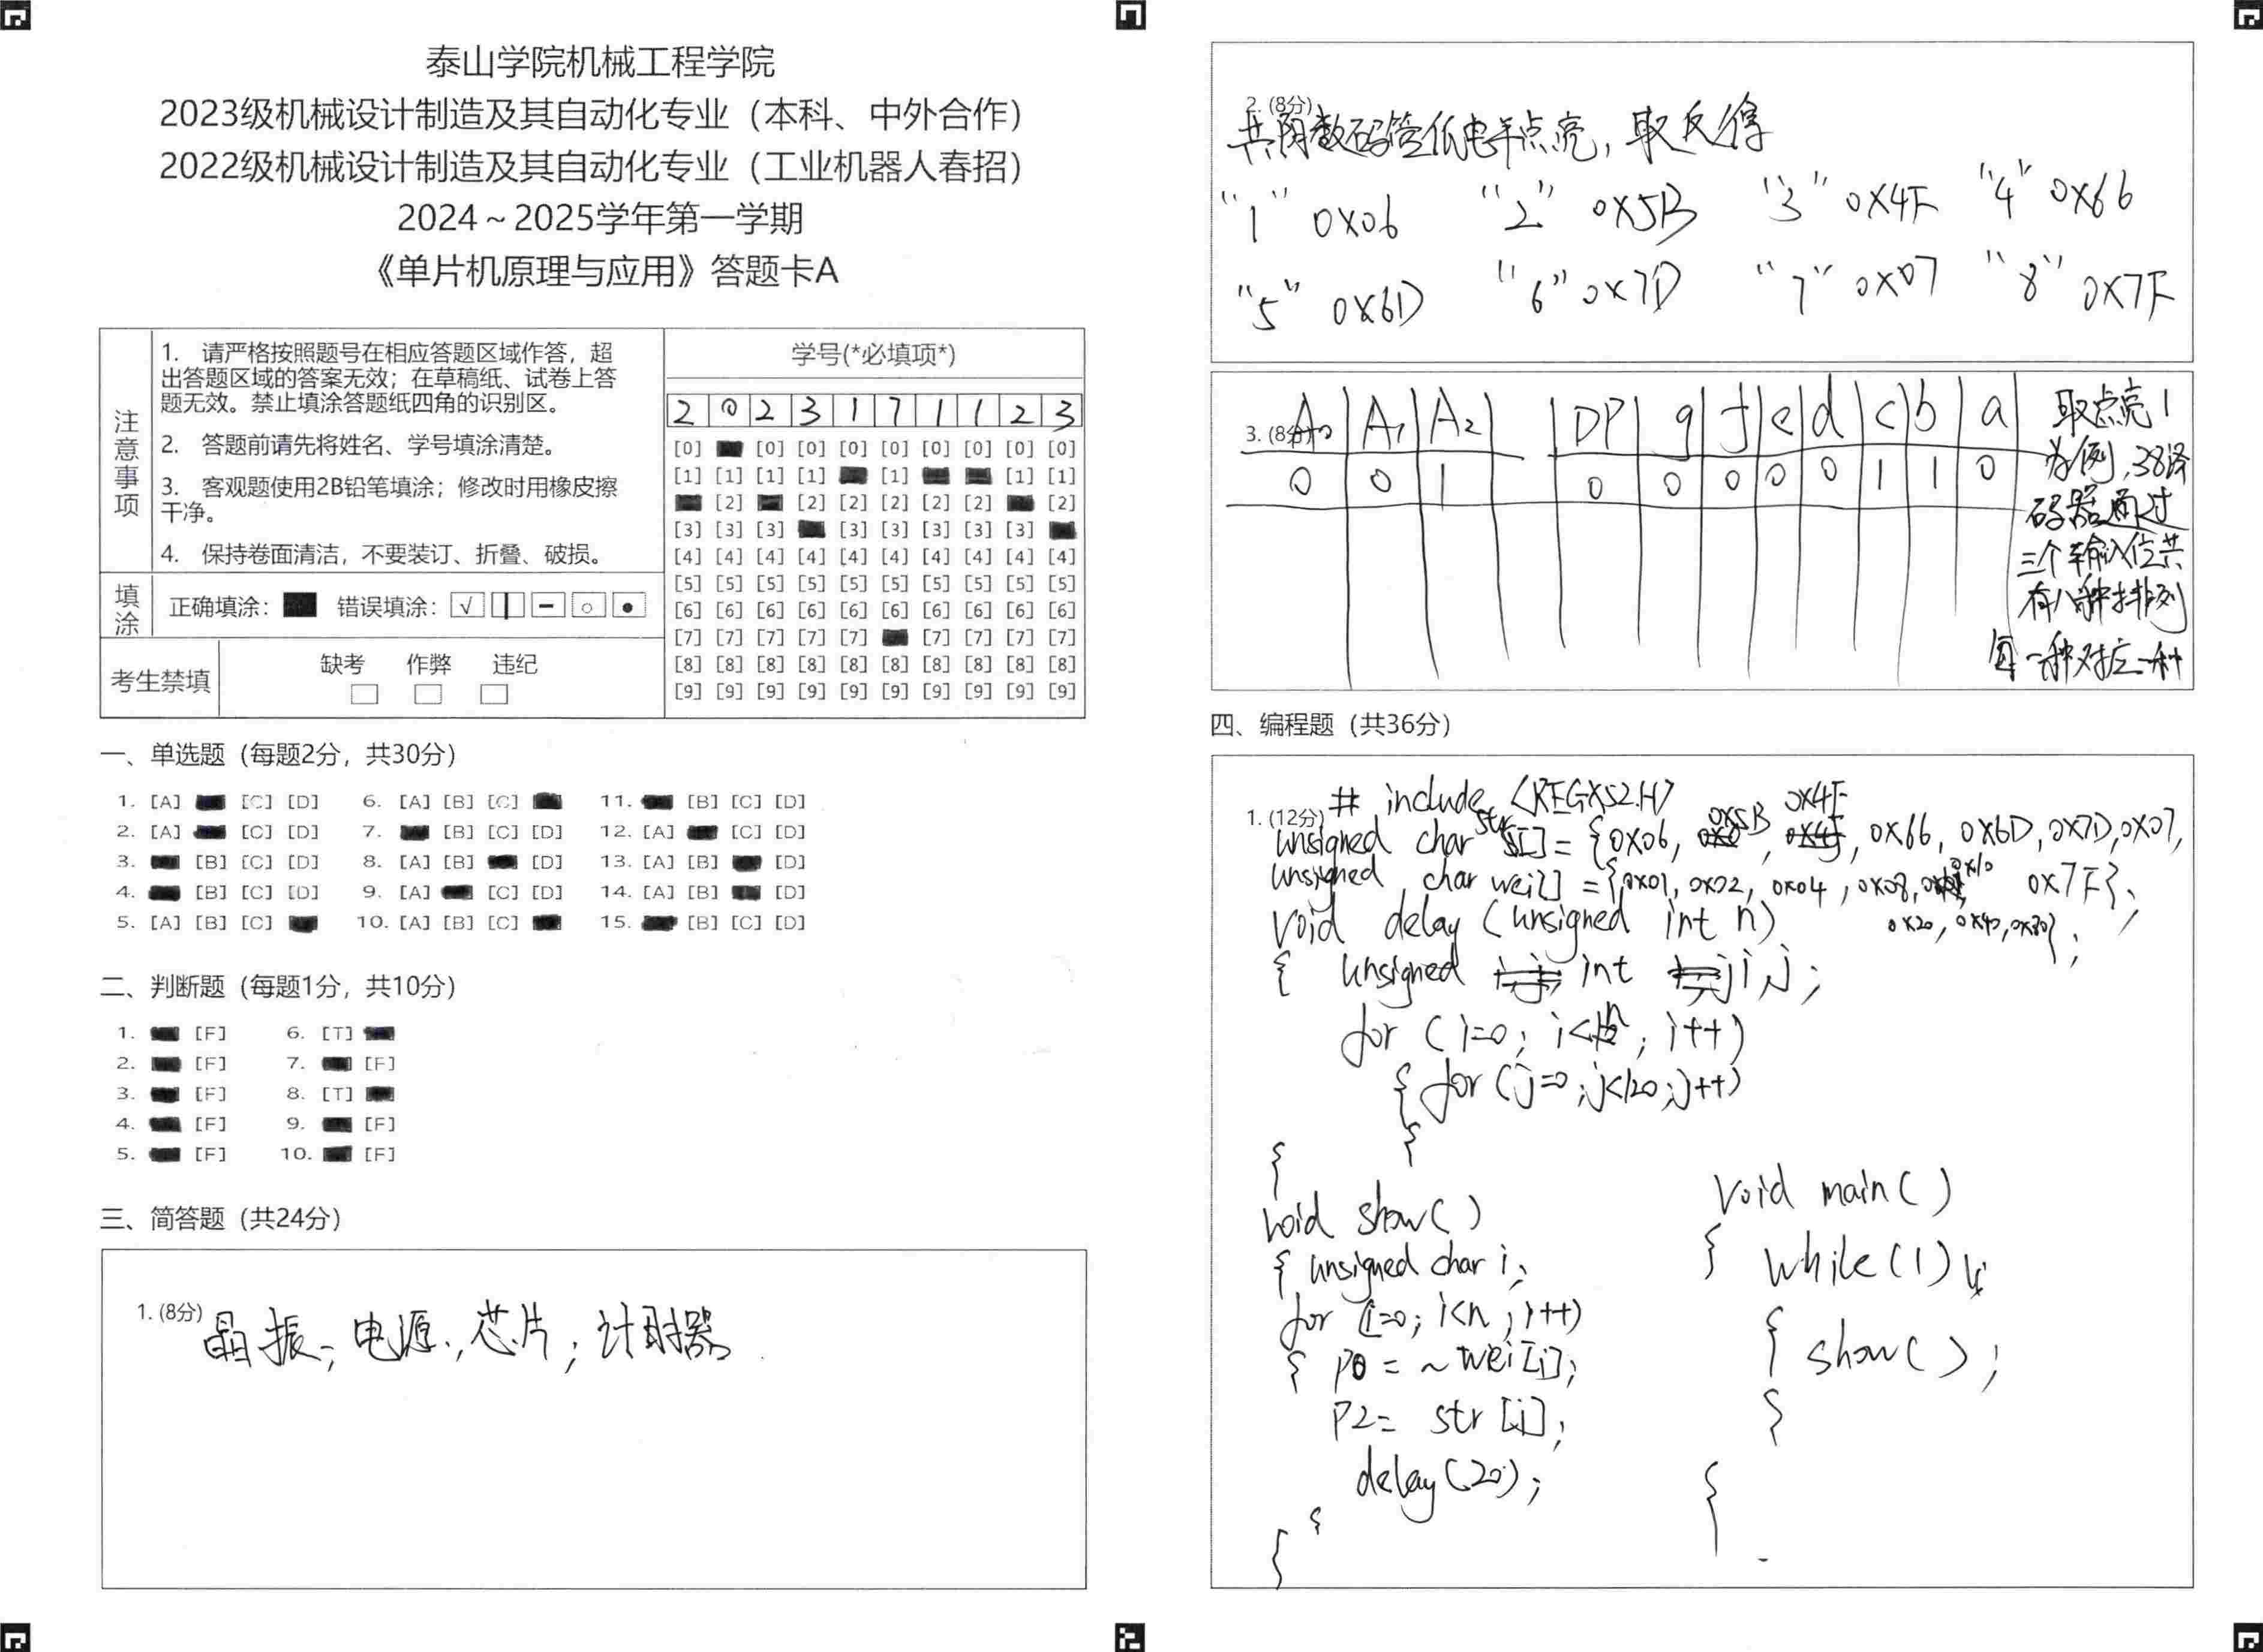 泰山学院机械工程学院
2023级机械设计制造及其自动化专业（本科、中外合作）
2022级机械设计制造及其自动化专业（工业机器人春招）
2024～2025学年第一学期
《单片机原理与应用》答题卡A
注意事项
1. 请严格按照题号在相应答题区域作答，超
出答题区域的答案无效；在草稿纸、试卷上答
题无效。禁止填涂答题纸四角的识别区。
2. 答题前请先将姓名、学号填涂清楚。
3. 客观题使用2B铅笔填涂；修改时用橡皮擦
干净。
4. 保持卷面清洁，不要装订、折叠、破损。
填涂
正确填涂： 错误填涂：
考生禁填
缺考 作弊 违纪
学号(*必填项*)
2 0 2 3 1 7 1 1 2 3
[0] [0] [0] [0] [0] [0] [0] [0] [0]
[1] [1] [1] [1] [1] [1] [1]
[2] [2] [2] [2] [2] [2] [2]
[3] [3] [3] [3] [3] [3] [3] [3]
[4] [4] [4] [4] [4] [4] [4] [4] [4] [4]
[5] [5] [5] [5] [5] [5] [5] [5] [5] [5]
[6] [6] [6] [6] [6] [6] [6] [6] [6] [6]
[7] [7] [7] [7] [7] [7] [7] [7] [7]
[8] [8] [8] [8] [8] [8] [8] [8] [8] [8]
[9] [9] [9] [9] [9] [9] [9] [9] [9] [9]
一、单选题（每题2分，共30分）
1. [A] [C] [D] 6. [A] [B] [C] 11. [B] [C] [D]
2. [A] [C] [D] 7. [B] [C] [D] 12. [A] [C] [D]
3. [B] [C] [D] 8. [A] [B] [D] 13. [A] [B] [D]
4. [B] [C] [D] 9. [A] [C] [D] 14. [A] [B] [D]
5. [A] [B] [C] 10. [A] [B] [C] 15. [B] [C] [D]
二、判断题（每题1分，共10分）
1. [F] 6. [T]
2. [F] 7. [F]
3. [F] 8. [T]
4. [F] 9. [F]
5. [F] 10. [F]
三、简答题（共24分）
1. (8分) 晶振，电源，芯片，计时器
2. (8分)
共阴数码管低电平点亮，取反得
"1" 0X06 "2" 0X5B "3" 0X4F "4" 0X66
"5" 0X6D "6" 0X7D "7" 0X07 "8" 0X7F
3. (8分)
A0 A1 A2 DP g f e d c b a
0 0 1 0 0 0 0 0 1 1 0
取点亮1
为例，38译
码器通过
三个输入位共
有八种排列
每一种对应一种
四、编程题（共36分）
1. (12分)
# include <REGX52.H>
unsigned char str[] = {0X06, 0X5B, 0X4F, 0X66, 0X6D, 0X7D, 0X07,
0X7F};
unsigned char wei[] = {0X01, 0X02, 0X04, 0X08, 0X10
0X20, 0X40, 0X80};
void delay (unsigned int n)
{ unsigned int i,j;
for (i=0; i<n; i++)
{ for (j=0; j<120; j++)
}
}
void show()
{ unsigned char i;
for (i=0; i<n; i++)
{ P0 = ~wei[i];
P2 = str[i];
delay(20);
}
}
void main()
{ while(1)
{ show();
}
}